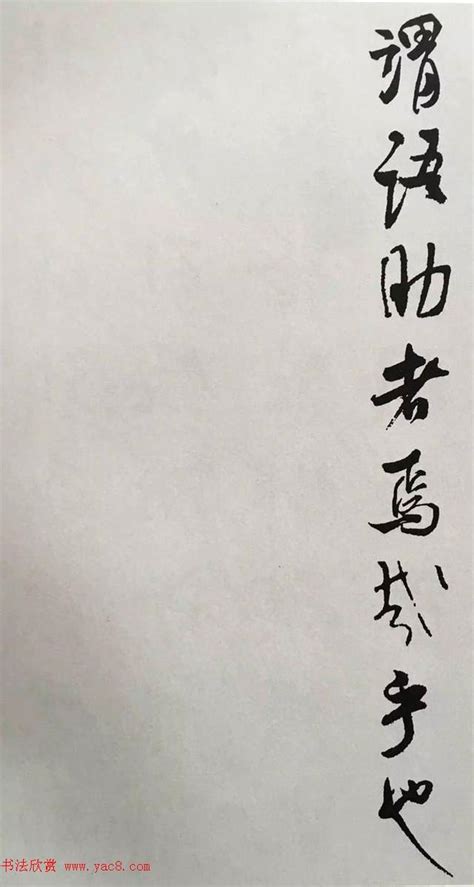 谓语助者焉哉乎也
书法欣赏 www.yac8.com